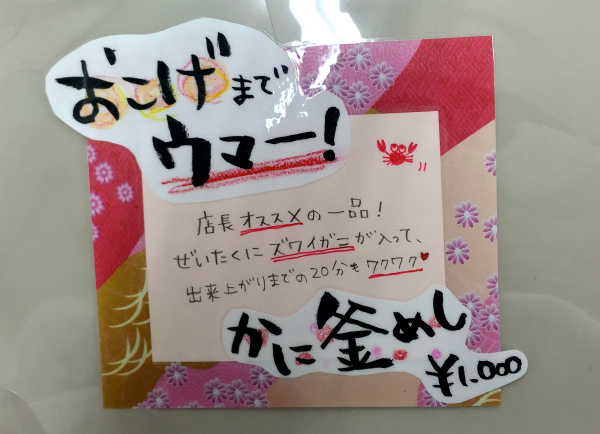 おこげまで
ウマー!
店長オススメの一品!
ぜいたくにズワイガニが入って、
出来上がりまでの20分もワクワク♥
かに釜めし
¥1.000